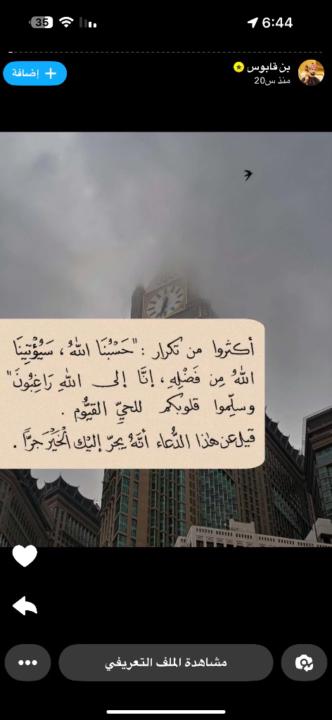 6:44
35
بن قابوس
منذ س20
+ إضافة
أكثروا من تكرار : "حَسْبُنَا اللهُ ، سَيُؤْتِينَا
اللهُ مِن فَضْلِهِ ، إِنَّا إلى اللهِ رَاغِبُونَ"
وسلِّموا قلوبكم للحيّ القيُّوم .
قيل عن هذا الدُّعاء أنّهُ يجرّ إليْك الْخَيْر جرًّا .
مشاهدة الملف التعريفي